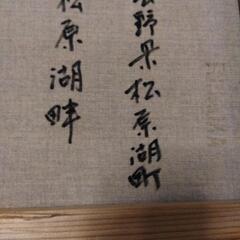 野県松原湖町
松原湖畔